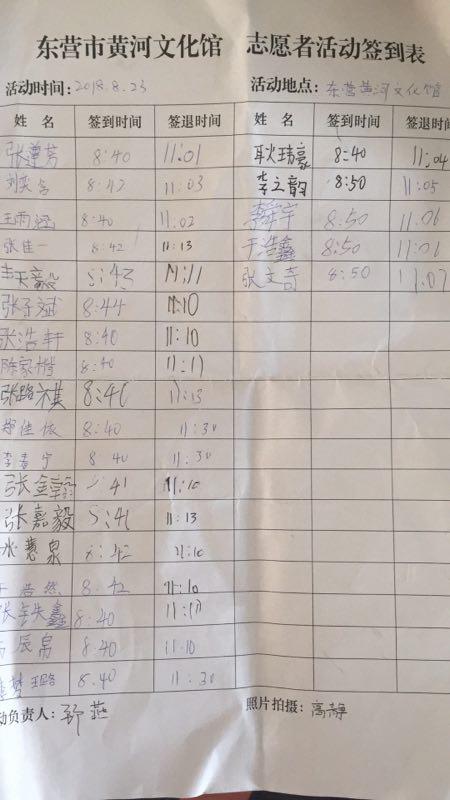 东营市黄河文化馆 志愿者活动签到表
活动时间：2018.8.23 活动地点：东营黄河文化馆
姓 名 签到时间 签退时间 姓 名 签到时间 签退时间
张莲芳 8:40 11:01 耿玮豪 8:40 11:04
刘奕含 8:42 11:03 李之韵 8:50 11:05
王雨涵 8:40 11:02 李舜宇 8:50 11:06
张佳一 8:42 11:13 于浩鑫 8:50 11:01
天毅 8:43 11:11 张文奇 8:50 11:07
张子斌 8:44 11:10
张浩轩 8:40 11:10
陈家楷 8:40 11:11
张路祺 8:41 11:13
郑佳依 8:40 11:30
李春宁 8:40 11:30
张金 41 11:10
张嘉毅 8:41 11:13
水蕙泉 8:42 11:10
于浩然 8:42 11:10
张轶鑫 8:40 11:10
辰帛 8:40 11:10
梦璐 8:40 11:30
动负责人：舒燕 照片拍摄：高静